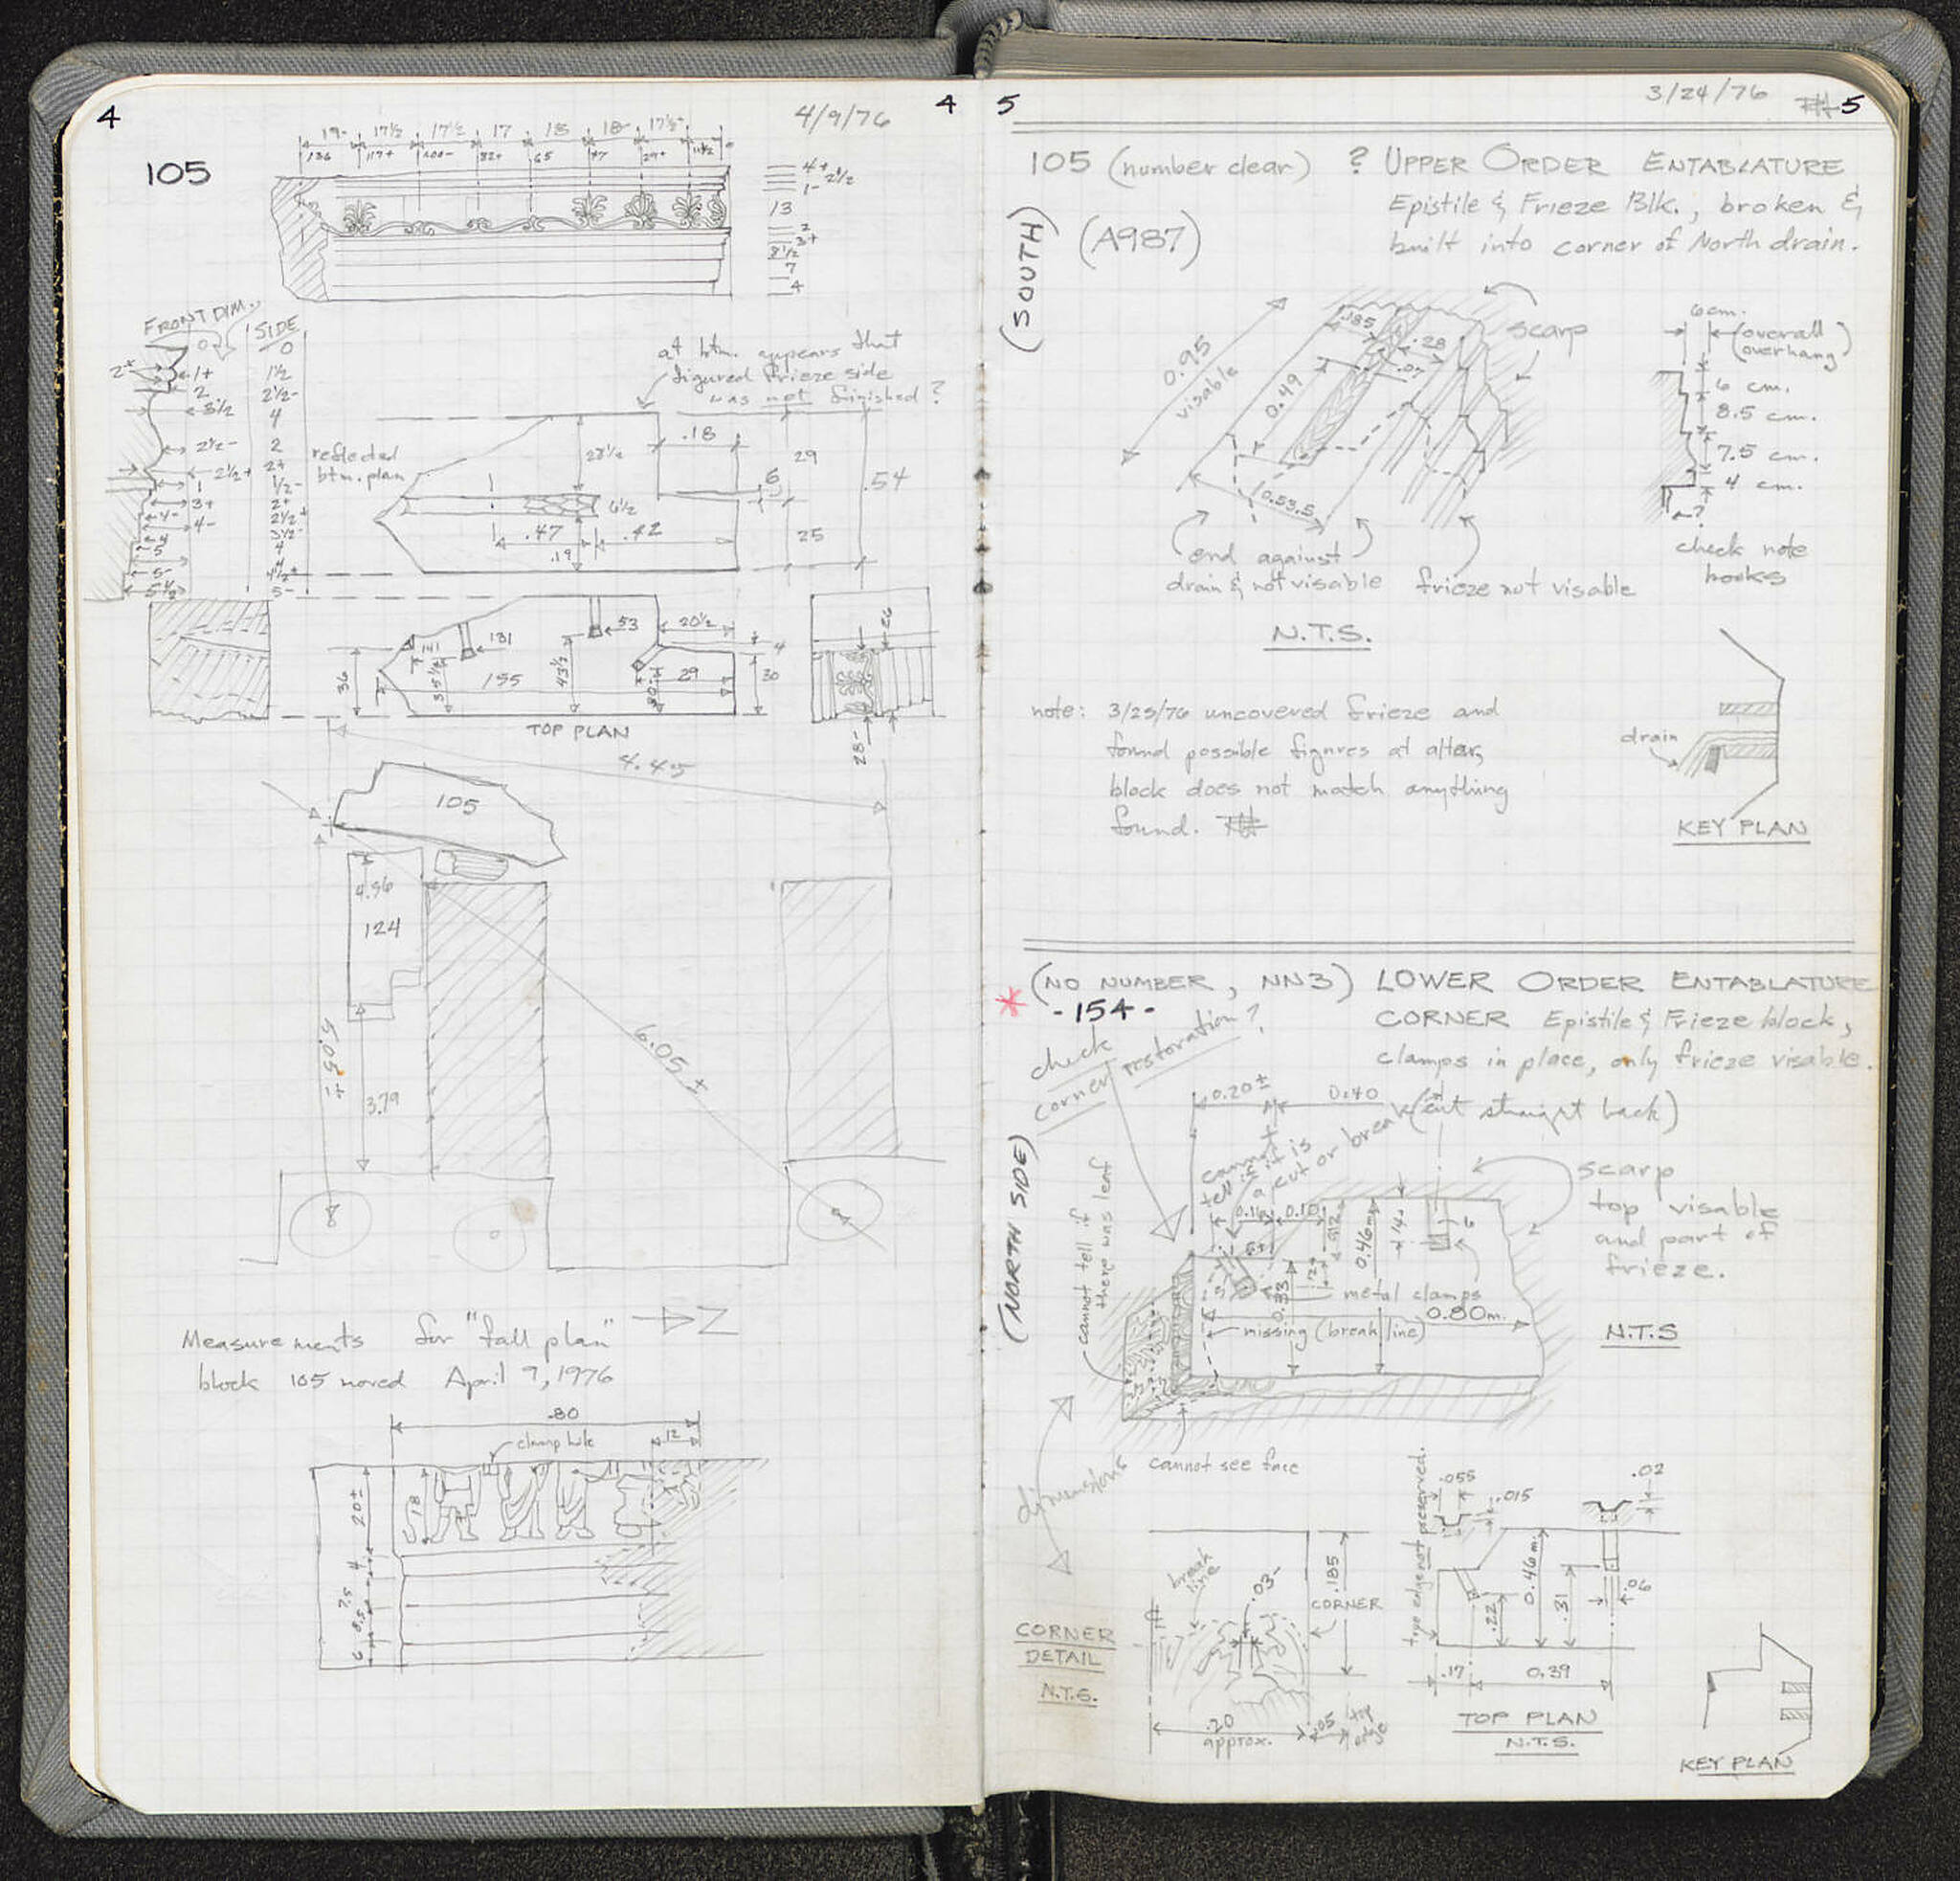 4
4/9/76
4
105
19-
17½
17½
17
18
18-
17½-
136
117+
100-
82+
65
47
29+
11½
4+
2½
1-
13
2
3+
8½
7
4
FRONT DIM.
SIDE
0
0
2+
1+
1½
2
2½-
3½
4
2½-
2
2½+
2+
1
½-
3+
2+
4-
2½+
4-
3½-
4
4
5
4
5-
4½+
5½
5-
at btm. appears that
figured frieze side
was not finished?
reflected
btm. plan
.18
28½
29
6
.54
6½
.47
.42
.19
25
141
131
53
20½
4
36
35½
155
43½
30-
29
30
26
28-
TOP PLAN
4.45
105
4.36
124
6.05±
6.05±
3.79
Measurements for "fall plan"
N
block 105 moved April 9, 1976
.80
clamp hole
12
20±
18
4
7.5
8.5
6
5
3/24/76
5
105 (number clear) ? UPPER ORDER ENTABLATURE
Epistile & Frieze Blk., broken &
built into corner of North drain.
(SOUTH)
(A987)
0.95
visable
.185
.28
.07
0.49
0.53.5
scarp
6cm.
(overall
overhang)
6 cm.
8.5 cm.
7.5 cm.
4 cm.
?
check note
books
end against
drain & not visable
frieze not visable
N.T.S.
note: 3/25/76 uncovered frieze and
found possible figures at altar,
block does not match anything
found.
drain
KEY PLAN
* (NO NUMBER, NN3) LOWER ORDER ENTABLATURE
-154-
CORNER Epistile & Frieze block,
clamps in place, only frieze visable.
check
corner restoration?
(NORTH SIDE)
0.20±
0.40
(cut straight back)
cannot
tell if it is
a cut or break
cannot tell if
there was leaf
0.16
0.10
.12
0.46m
.14
6
0.33
metal clamps
0.80m.
missing (break line)
scarp
top visable
and part of
frieze.
N.T.S
cannot see face
dimensions
break
line
.03-
.185
CORNER
CORNER
DETAIL
N.T.S.
.20
approx.
.05
top
edge
top edge not preserved.
.055
.015
.02
0.46m.
.31
.22
.06
.17
0.39
TOP PLAN
N.T.S.
KEY PLAN